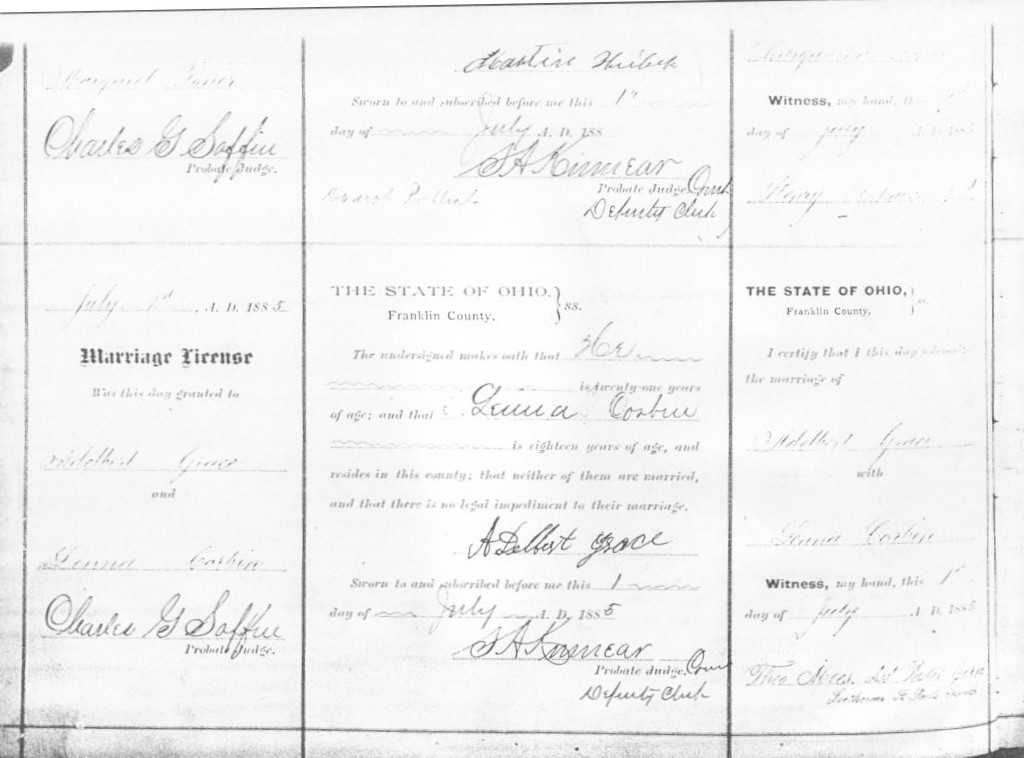 Margaret
Charles G Saffin
Probate Judge.
Sworn to and subscribed before me this 1st
day of July A. D. 188
S A Kinnear
Probate Judge,
Deputy Clerk
Witness, my hand, this
day of July A. D. 188
Henry
July 1st A. D. 1885.
Marriage License
Was this day granted to
Adelbert Grace
and
Lenna Corbin
Charles G Saffin
Probate Judge.
THE STATE OF OHIO, } ss.
Franklin County,
The undersigned makes oath that He
is twenty-one years
of age; and that Lenna Corbin
is eighteen years of age, and
resides in this county; that neither of them are married,
and that there is no legal impediment to their marriage.
ADelbert Grace
Sworn to and subscribed before me this 1
day of July A. D. 1885
S A Kinnear
Probate Judge,
Deputy Clerk
THE STATE OF OHIO,
Franklin County,
I certify that I this day
the marriage of
Adelbert Grace
with
Lenna Corbin
Witness, my hand, this 1st
day of July A. D. 1885
Theo Mees.